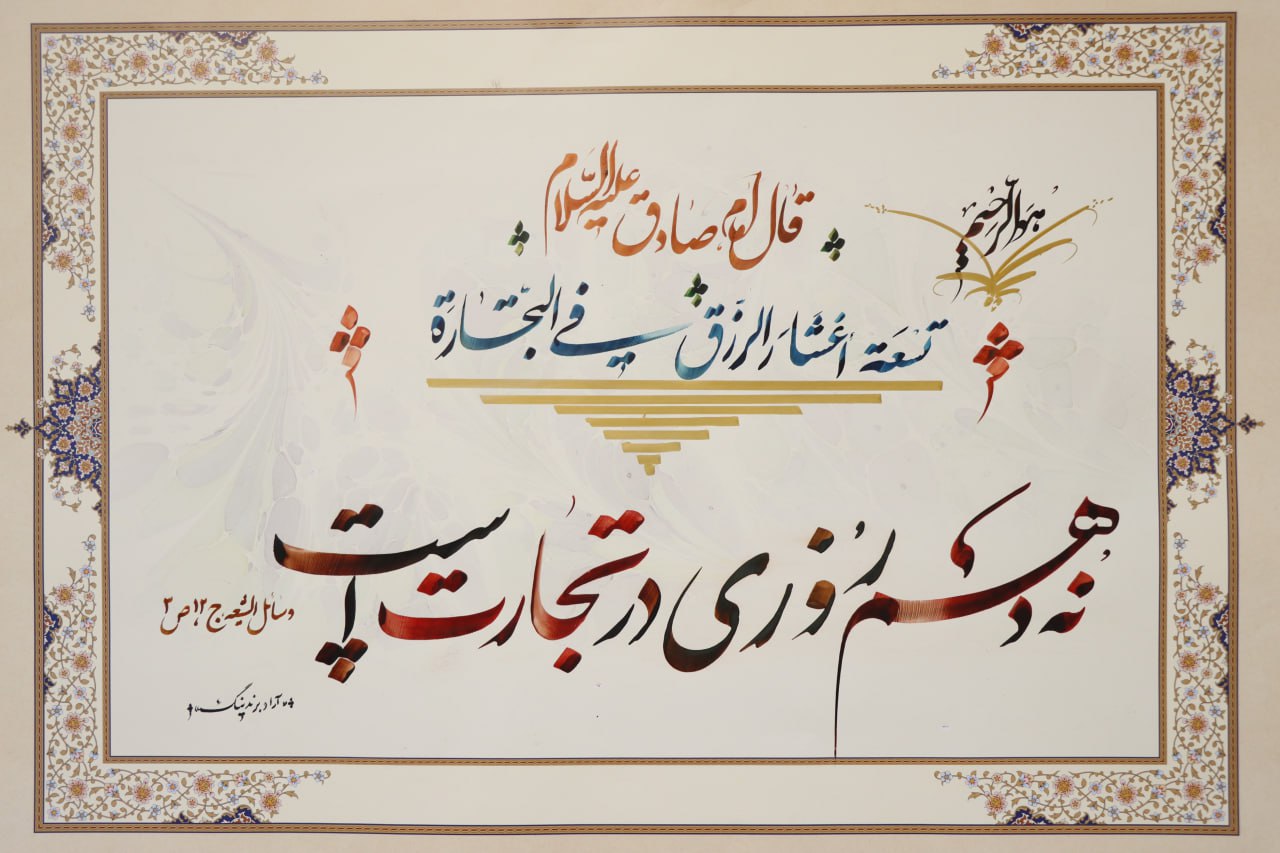 هوالرحیم
قال امام صادق علیه السلام
تسعة أعشار الرزق في التجارة
نه دهم روزی در تجارت است
وسائل الشیعه ج ۱۲ ص ۳
آراد برندینگ